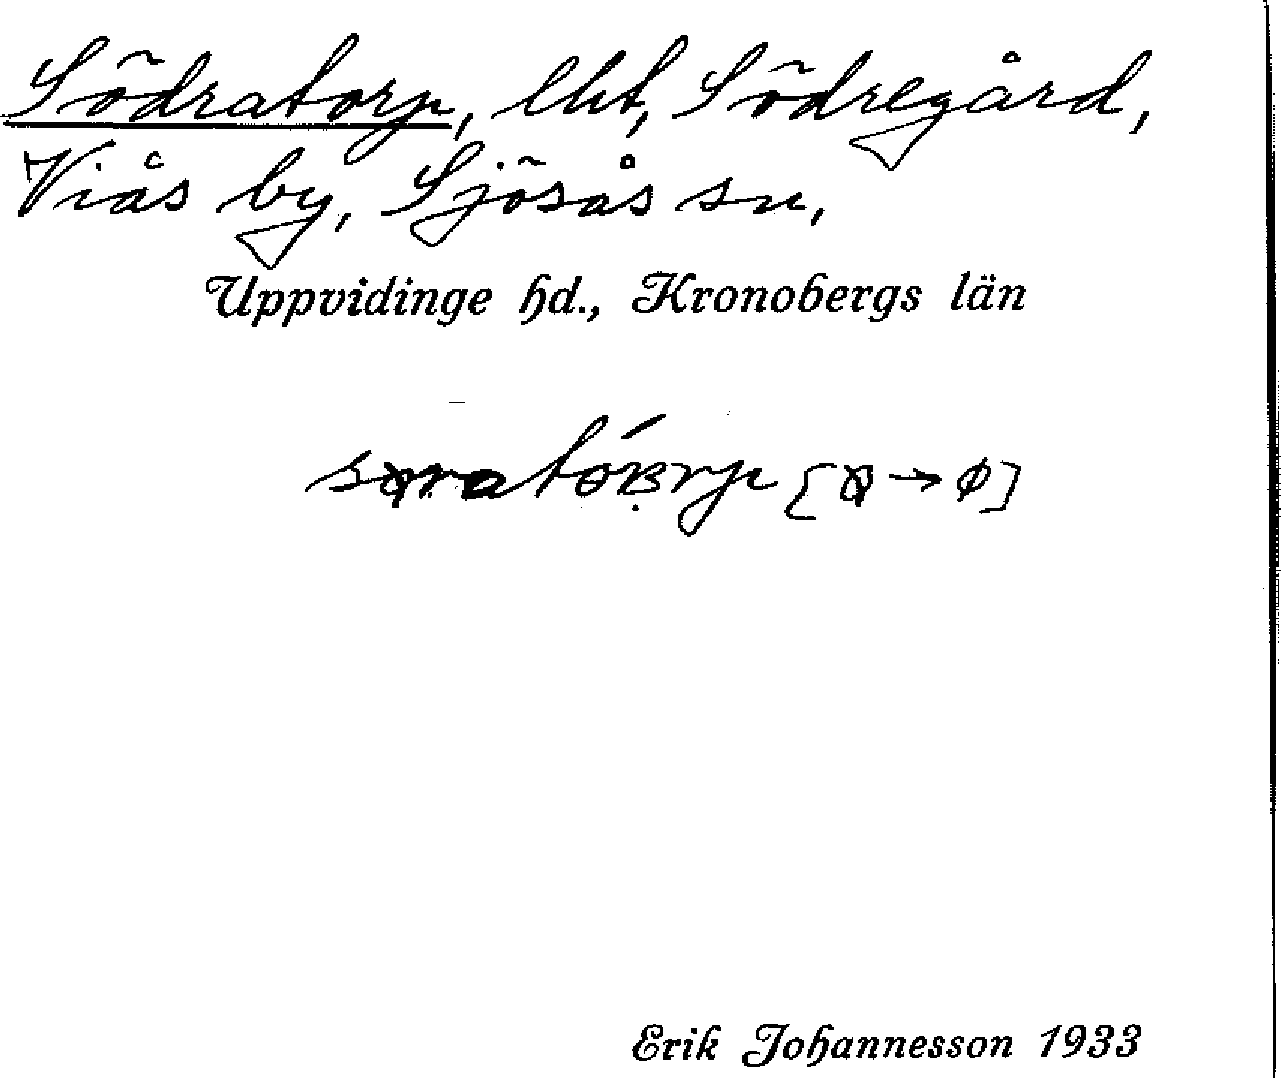 Södratorp, lht, Södregård,
Viås by, Sjösås sn,
Uppvidinge hd., Kronobergs län
Erik Johannesson 1933